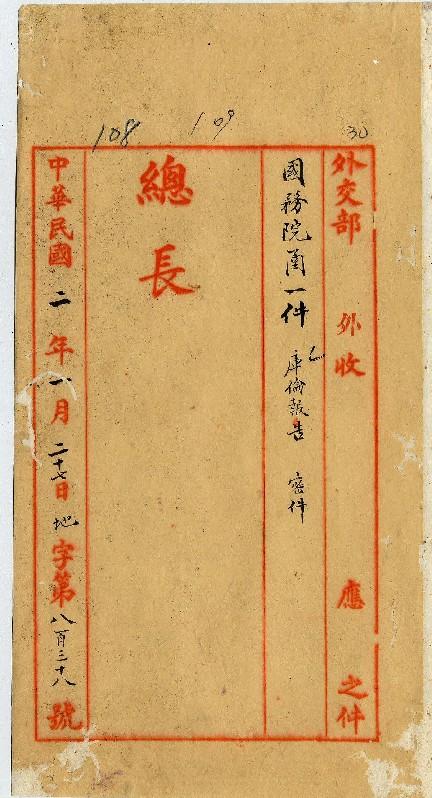 108
109
30
外交部 外收 應 之件
國務院函一件 乙 庫倫報告 密件
總長
中華民國二年一月二十七日地字第八百三十八號